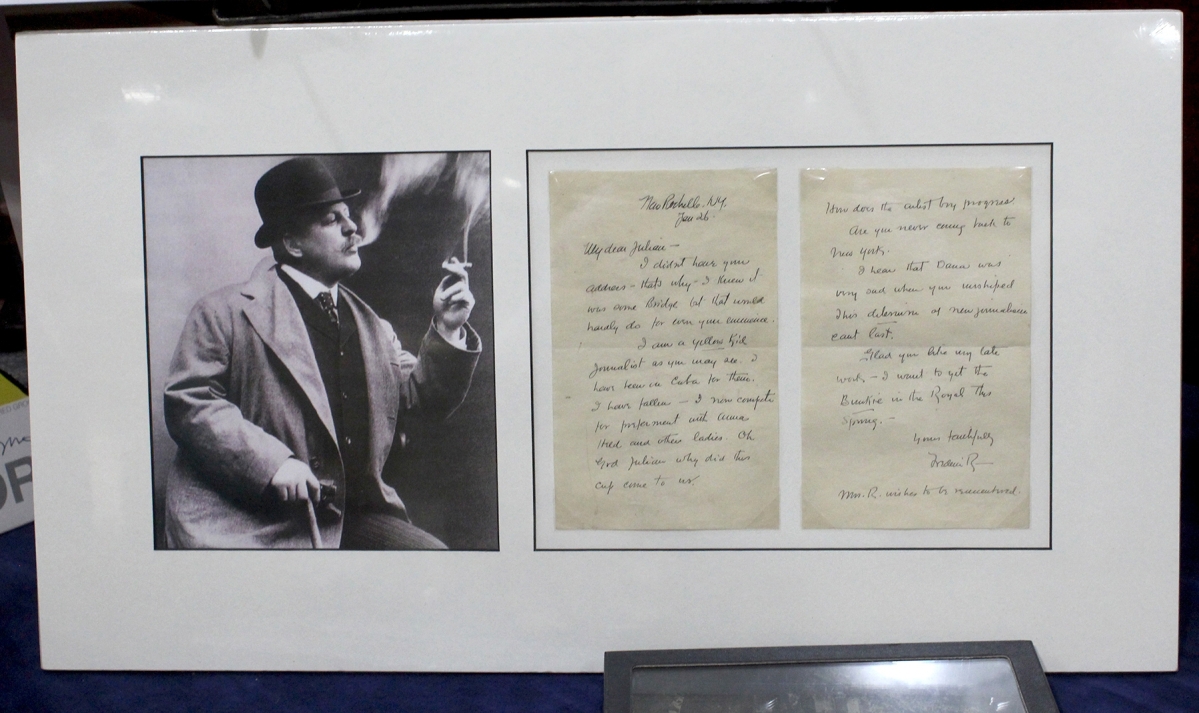 New Rochelle. N.Y.
Jan 26.
My dear Julian —
I didnt have your
address – thats why – I knew it
was some Bridge but that would
hardly do for even your eminence.
I am a yellow Kid
Journalist as you may see. I
have been in Cuba for them.
I have fallen — I now compete
for preferment with
and other ladies. Oh
God Julian why did this
cup come to us.
How does the artist boy progress
Are you never coming back to
New York.
I hear that Dana was
very sad when you
This of new journalism
cant last.
Glad you like my late
work – I want to get the
in the Royal this
Spring.
Yours faithfully
Frederic R—
Mrs. R. wishes to be remembered.